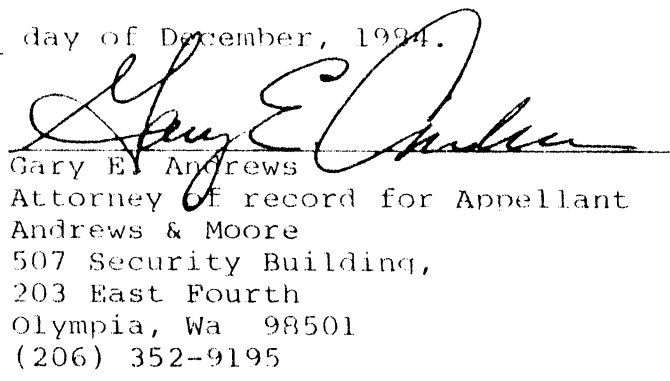 day of December, 1984.
Gary E. Andrews
Gary E. Andrews
Attorney of record for Appellant
Andrews & Moore
507 Security Building,
203 East Fourth
Olympia, Wa 98501
(206) 352-9195